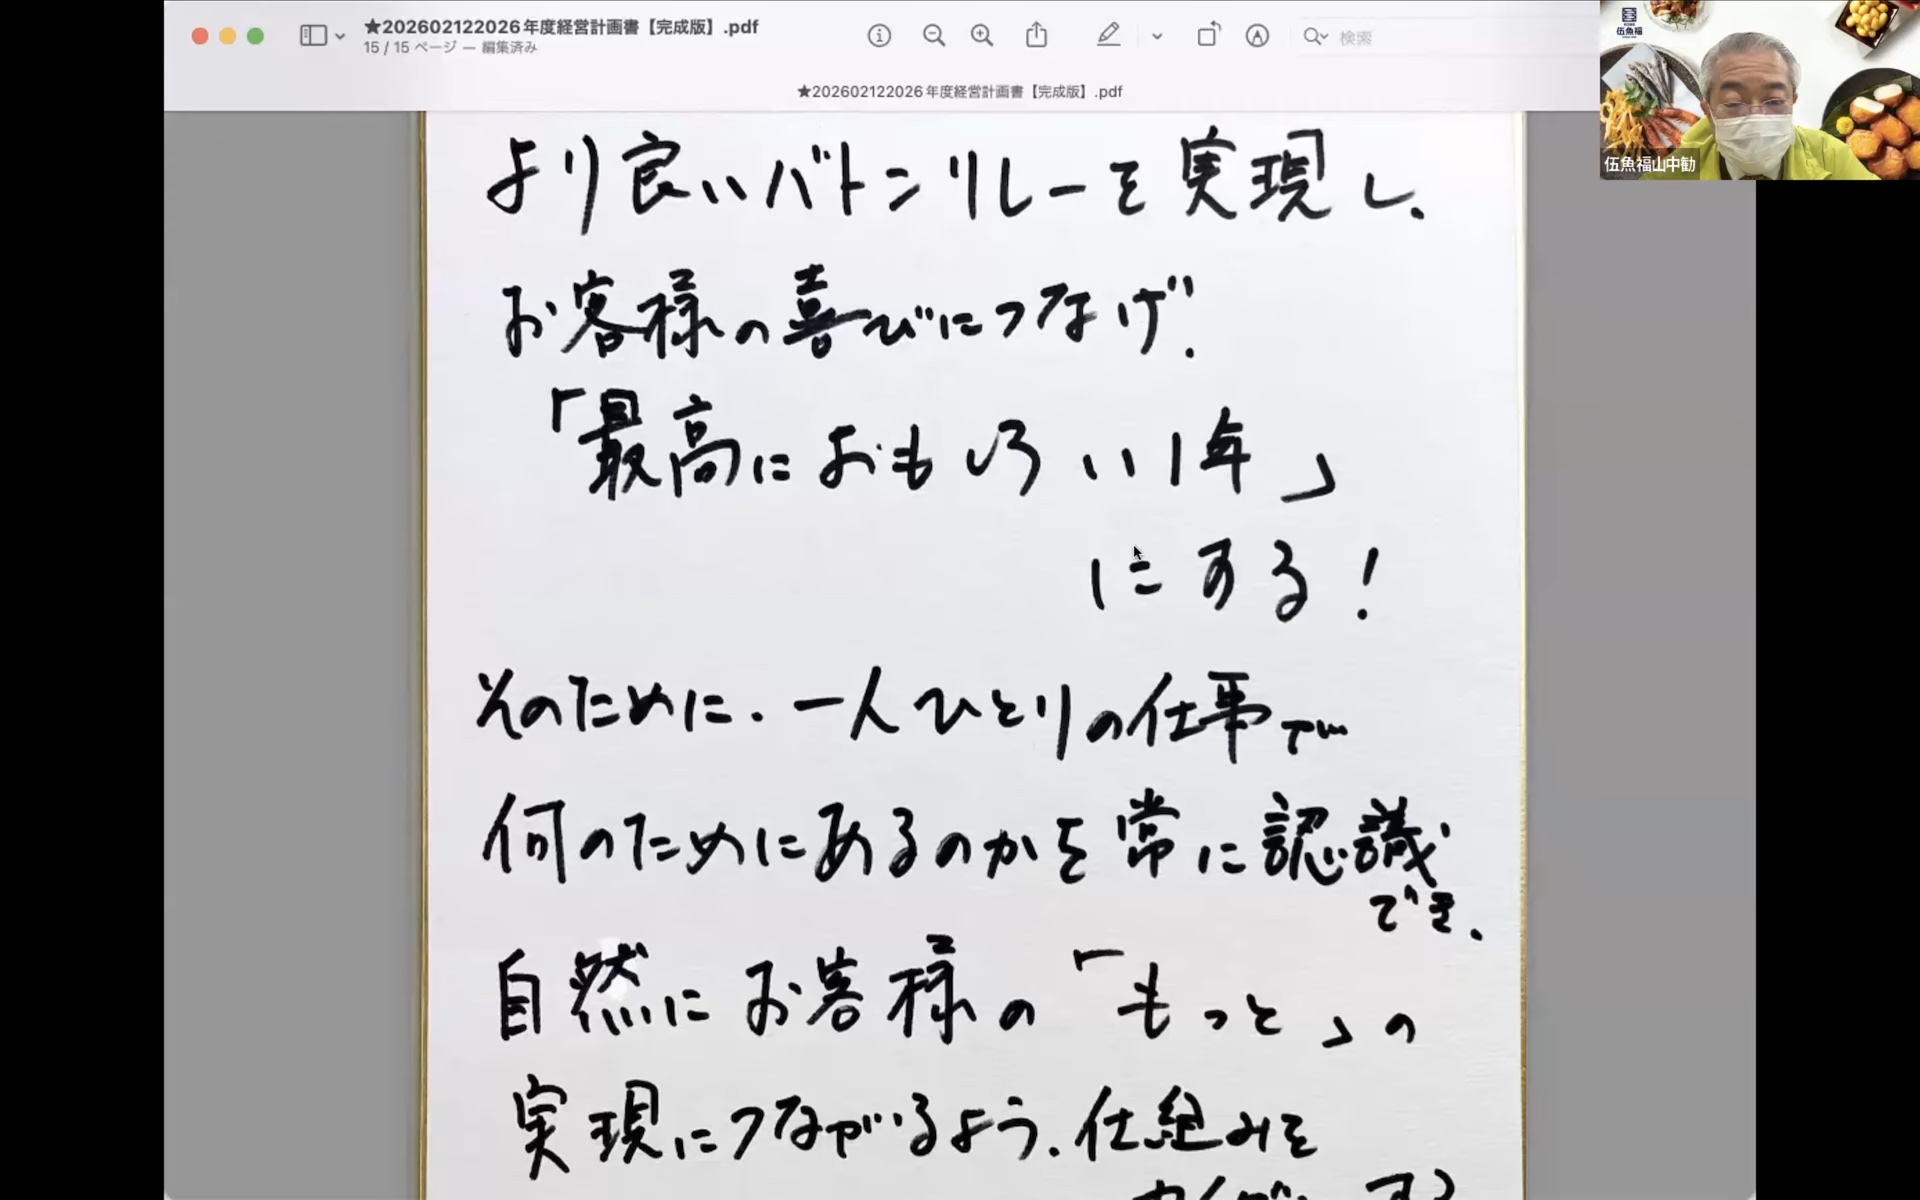 ★202602122026年度経営計画書【完成版】.pdf
15 / 15 ページ — 編集済み
検索
★202602122026年度経営計画書【完成版】.pdf
伍魚福
伍魚福山中勧
より良いバトンリレーを実現し、
お客様の喜びにつなげ、
「最高におもしろい1年」
にする!
そのために、一人ひとりの仕事が
何のためにあるのかを常に認識
でき、
自然にお客様の「もっと」の
実現につながるよう、仕組みを